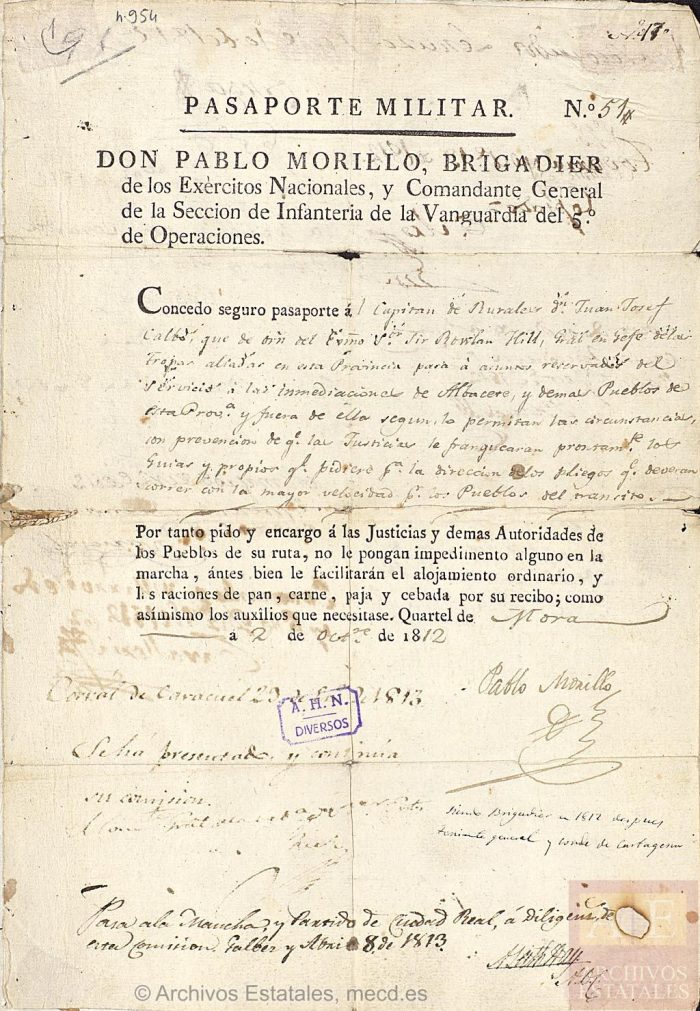 n.954
Nº 17
PASAPORTE MILITAR. N.º 514
DON PABLO MORILLO, BRIGADIER
de los Exèrcitos Nacionales, y Comandante General
de la Seccion de Infanteria de la Vanguardia del 5.º
de Operaciones.
Concedo seguro pasaporte á l Capitan de Rurales dn. Juan Josef
Calbo, que de orn del Exmo Sor Sir Rowlan Hill, Gral en Gefe de las
Tropas aliadas en esta Provincia pasa á asuntos reservados del
servicio á las inmediaciones de Albacete, y demas Pueblos de
esta Prova y fuera de ella segun lo permitan las circunstancias,
con prevencion de qe las Justicias le franquearan prontamte los
Guias y propios qe pidiere pa la direccion de los pliegos qe deveran
correr con la mayor velocidad pr los Pueblos del transito.
Por tanto pido y encargo á las Justicias y demas Autoridades de
los Pueblos de su ruta, no le pongan impedimento alguno en la
marcha, ántes bien le facilitarán el alojamiento ordinario, y
las raciones de pan, carne, paja y cebada por su recibo; como
asímismo los auxilios que necesitase. Quartel de Mora
á 2 de Octre de 1812
Pablo Morillo
Corral de Caracuel 29 de 1813
A. H. N.
DIVERSOS
Se há presentado, y continúa
su comision.
siendo Brigadier en 1812 despues
teniente general y conde de Cartagena
Pasa ala Mancha, y Partido de Ciudad Real, á Diligens de
esta Comision. y Abril 8 de 1813
© Archivos Estatales, mecd.es
AE
ARCHIVOS
ESTATALES